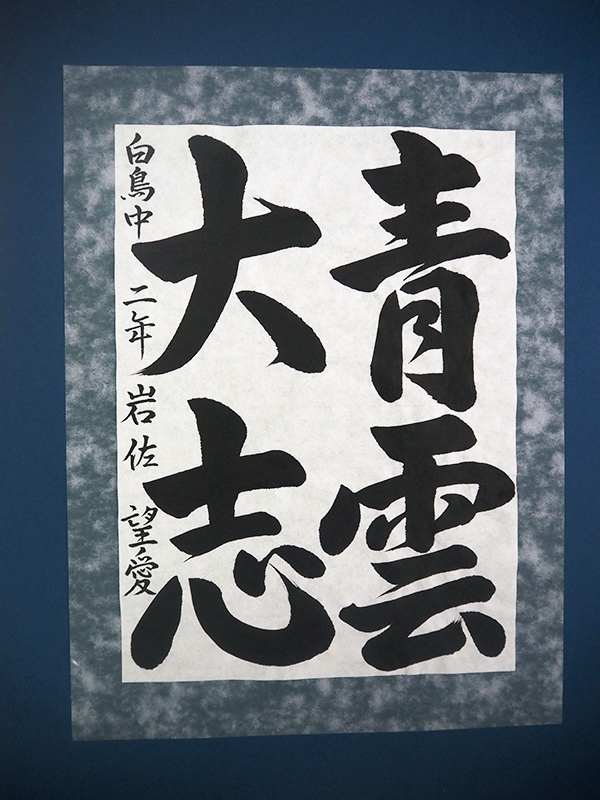 青雲
大志
白鳥中 二年 岩佐 望愛